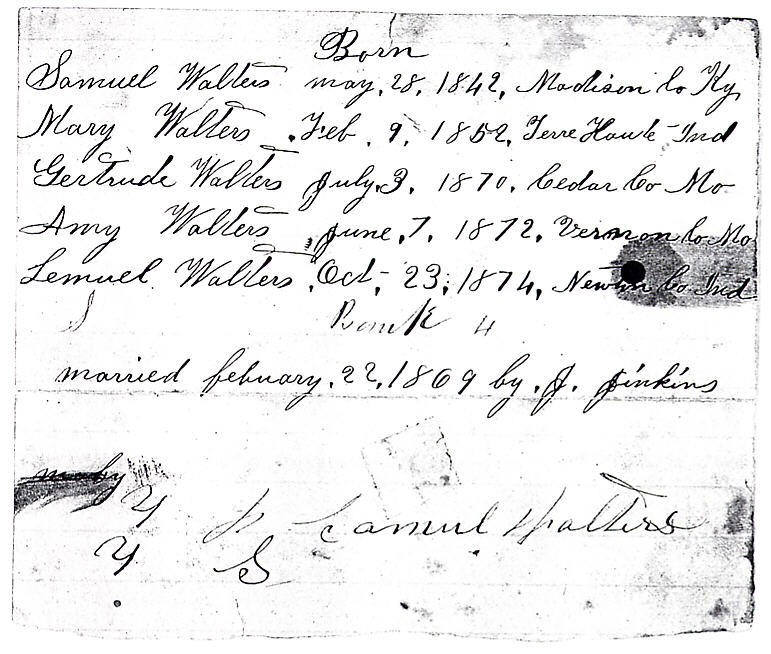 Born
Samuel Walters may, 28, 1842, Madison Co Ky
Mary Walters Feb, 9, 1852, Terre Haute Ind
Gertrude Walters July, 3, 1870, Cedar Co Mo
Amy Walters June, 7, 1872, Vernon Co Mo
Lemuel Walters Oct, 23, 1874, Newton Co Ind
4
married febuary, 22, 1869 by J. Jinkins
Samul Walters
S